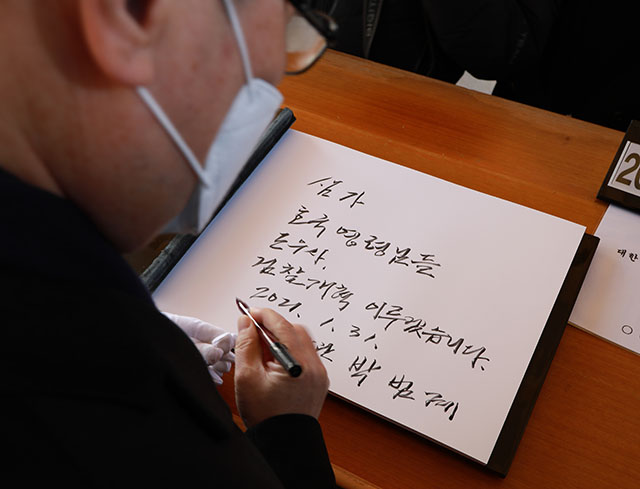 삼가
호국 영령님들
도우사,
검찰개혁 이루겠습니다.
2021. 1. 31.
관 박 범 계
20
대한